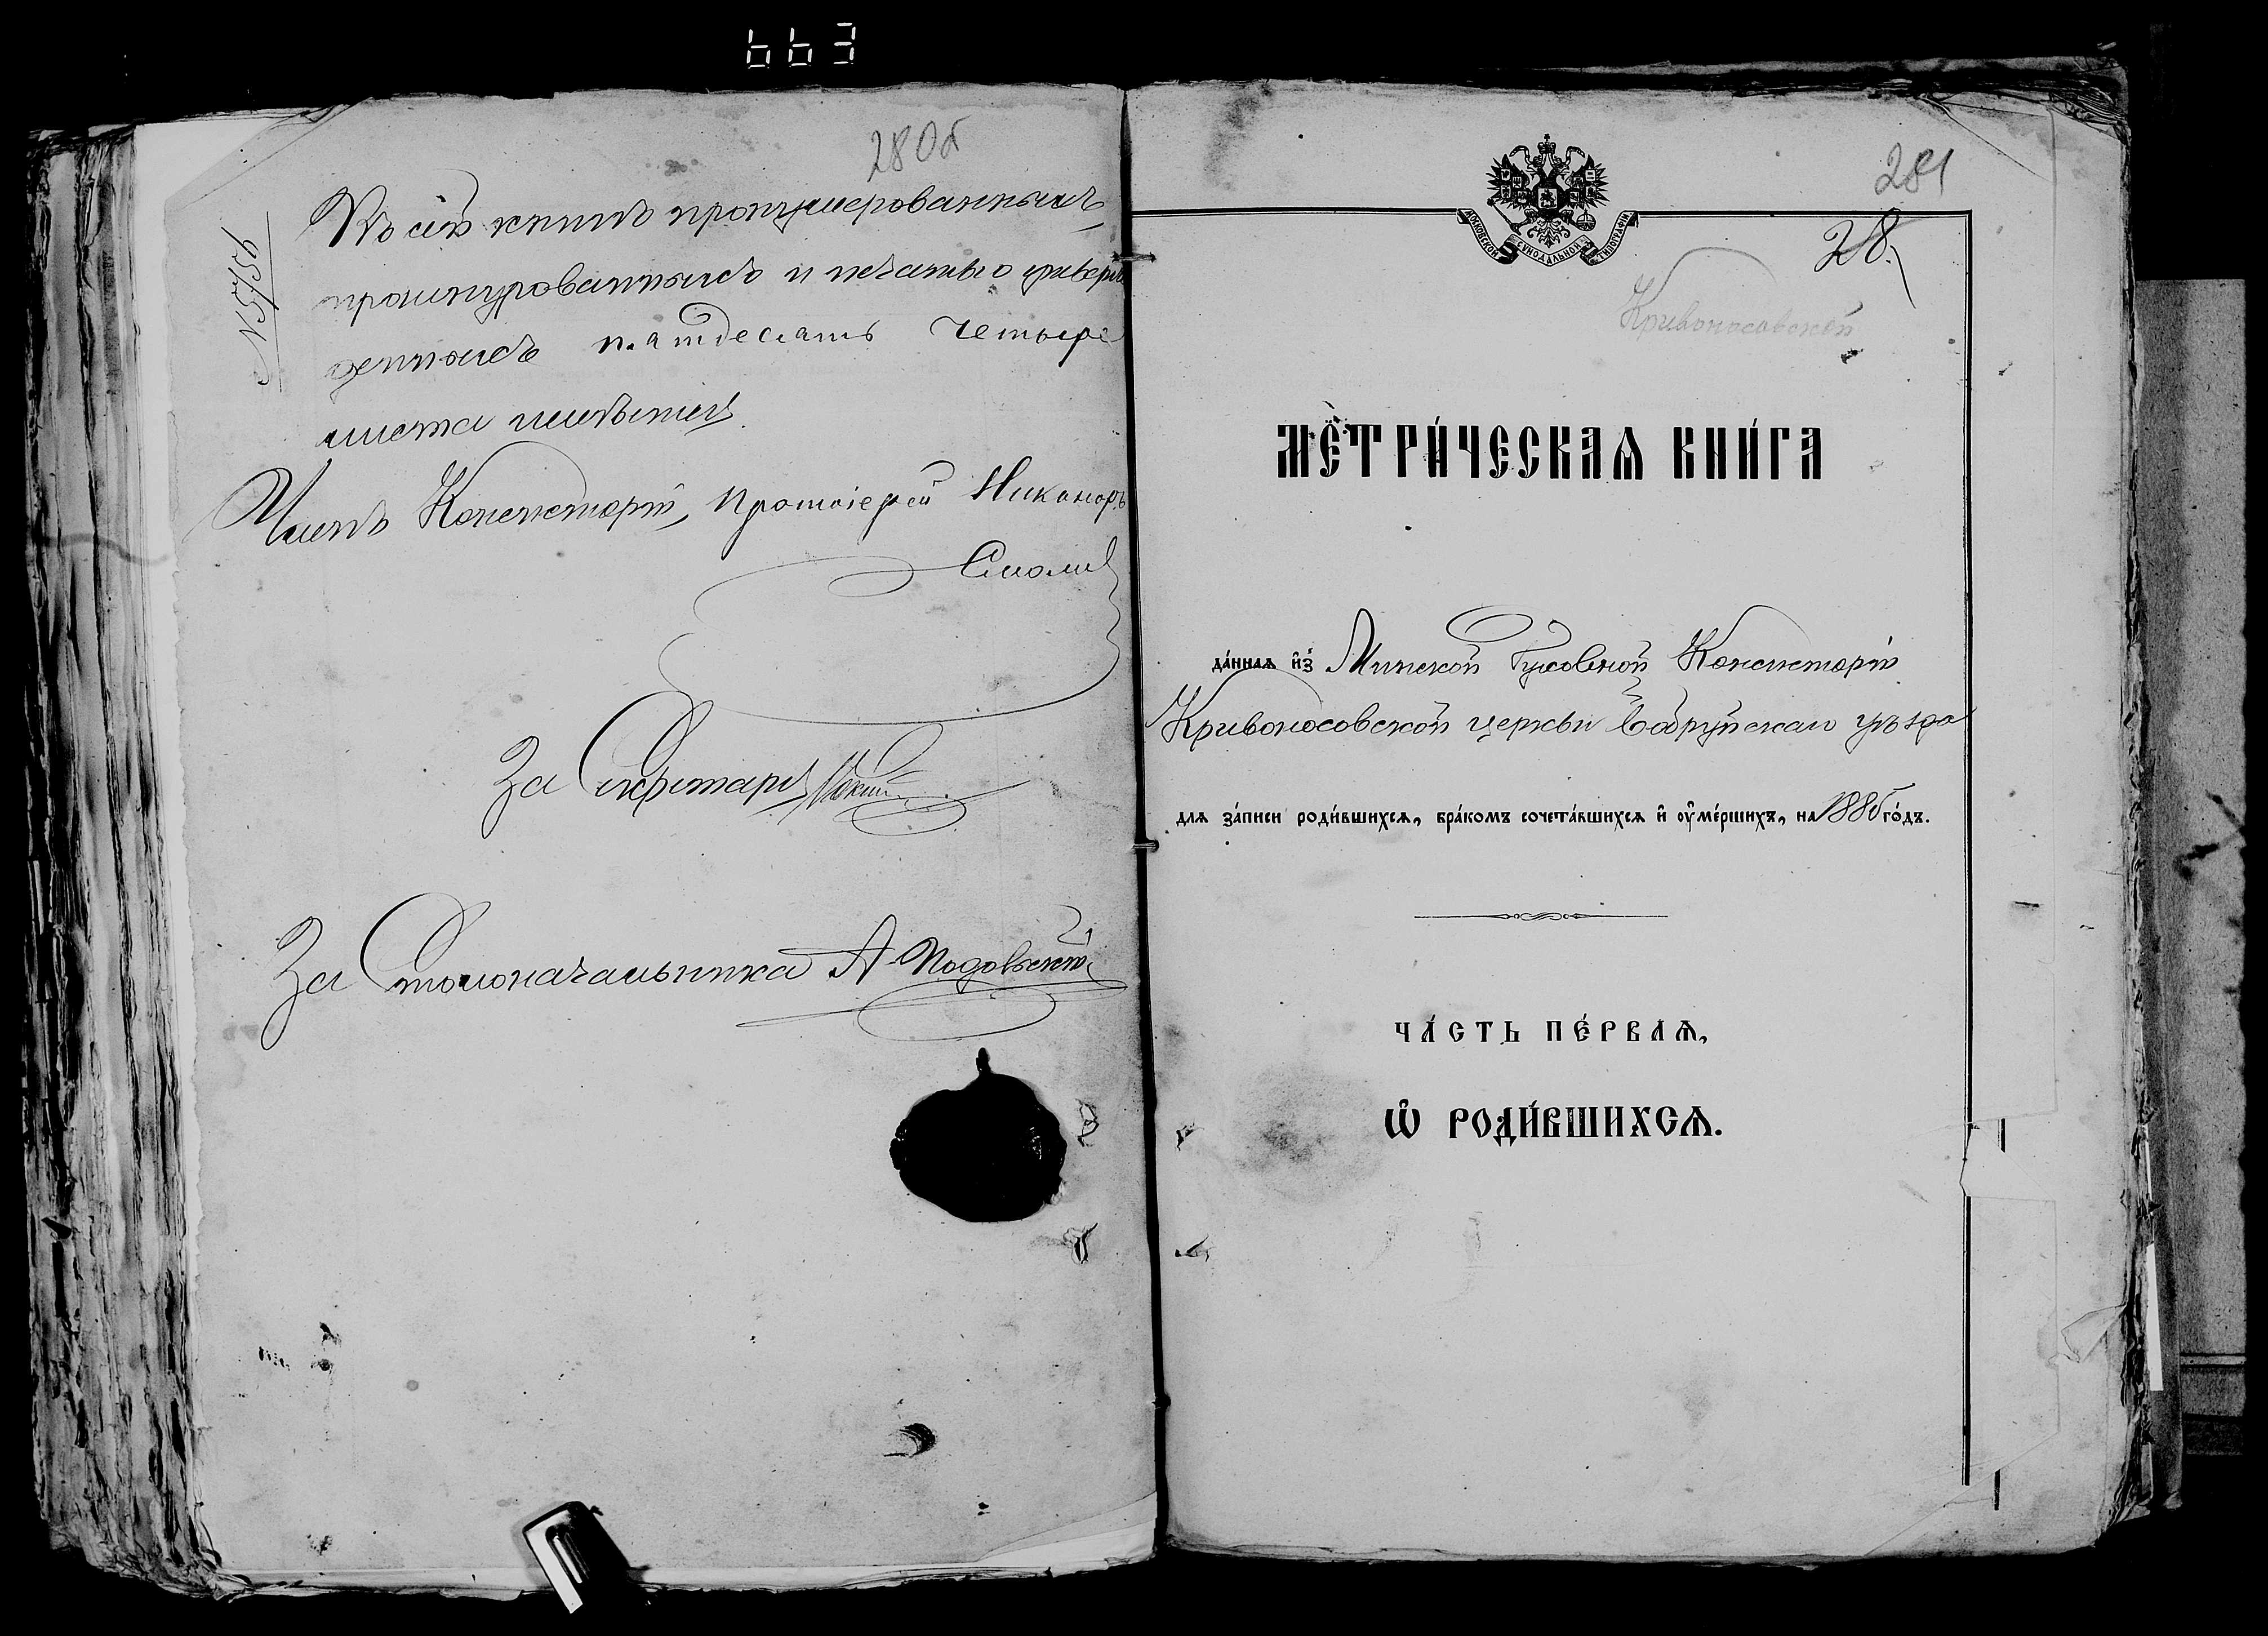 663
280б
№ 9515
Въ сей книгѣ пронумерованныхъ,
прошнурованныхъ и печатью утверж
денныхъ пятдесятъ четыре
листа имѣется.
Членъ Консисторіи, Протоіерей Никаноръ
Смолич
За Секретаря
За Столоначальника А. Подовскій
281
28.
МОСКОВСКОЙ СѴНОДАЛЬНОЙ ТИПОГРАФІИ
Кривоносовской
МЕ́ТРИ́ЧЕСКАѦ КНИ́ГА
да́ннаѧ и҆з̾ Минской Духовной Консисторіи
Кривоносовской церкви Бобруйскаго уѣзда
для за́писи роди́вшихсѧ, бра́комъ сочета́вшихсѧ и҆ ᲂу҆ме́ршихъ, на 1886 го́дъ.
ЧА́СТЬ ПЕ́РВАѦ,
Ѽ РОДИ́ВШИХСѦ.